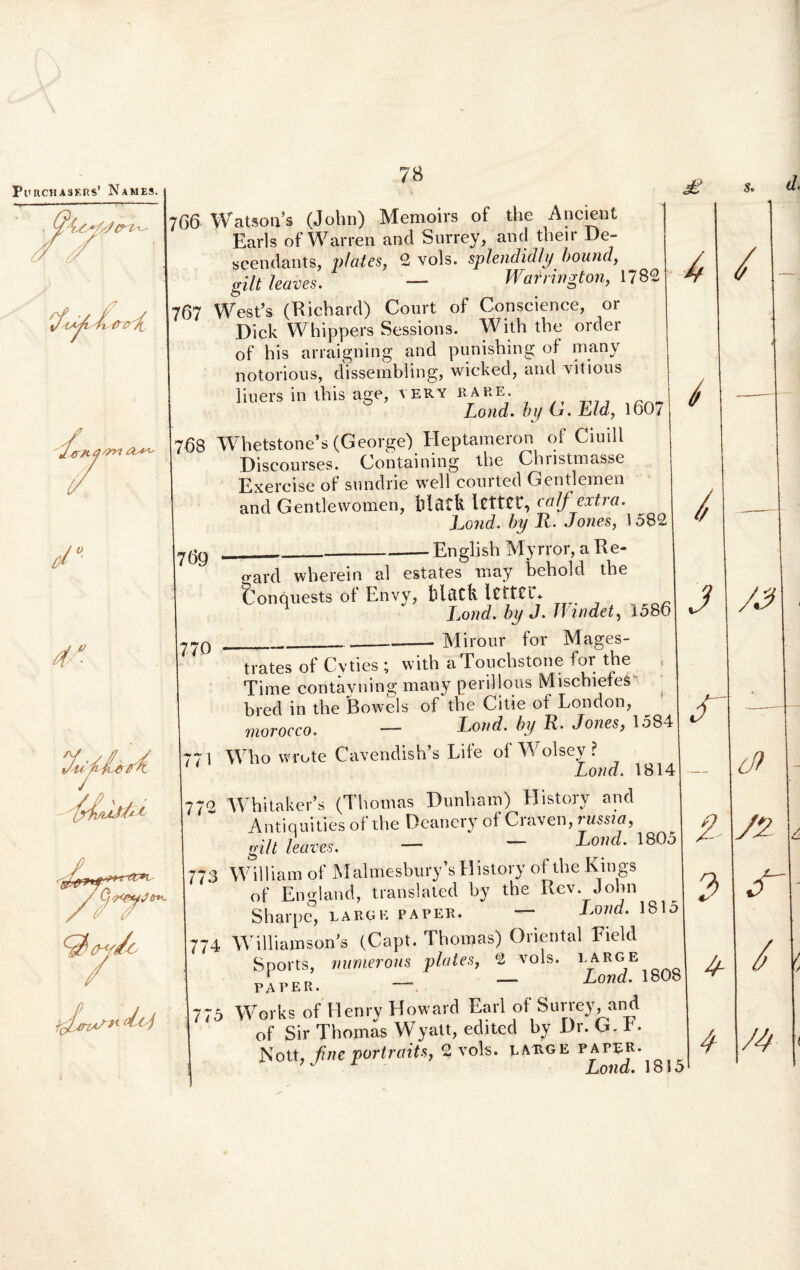 78
PURCHASERS' NAMES.
£ s. d.
766 Watson's (John) Memoirs of the Ancient
Earls of Warren and Surrey, and their De-
scendants, plates, 2 vols. splendidly bound,
gilt leaves. — Warrington, 1782
4 6
767 West's (Richard) Court of Conscience, or
Dick Whippers Sessions. With the order
of his arraigning and punishing of many
notorious, dissembling, wicked, and vitious
liuers in this age, VERY RARE.
Lond. by G. Eld, 1607
6
768 Whetstone's (George) Heptameron of Ciuill
Discourses. Containing the Christmasse
Exercise of sundrie well courted Gentlemen
and Gentlewomen, black letter, calf extra.
Lond. by R. Jones, 1582
6
do
769 ———— English Myrror, a Re-
gard wherein al estates may behold the
Conquests of Envy, black letter.
Lond. by J. Windet, 1586
3 13
do
770 ———— Mirour for Mages-
trates of Cyties ; with a Touchstone for the
Time contayning many perillous Mischiefes
bred in the Bowels of the Citie of London,
morocco. — Lond. by R. Jones, 1584
5
771 Who wrote Cavendish's Life of Wolsey ?
Lond. 1814
— 9
772 Whitaker's (Thomas Dunham) History and
Antiquities of the Deanery of Craven, russia,
gilt leaves. — — Lond. 1805
2 12
773 William of Malmesbury's History of the Kings
of England, translated by the Rev. John
Sharpe, LARGE PAPER. — Lond. 1815
3 5
Doyle
774 Williamson's (Capt. Thomas) Oriental Field
Sports, numerous plates, 2 vols. LARGE
PAPER. — — Lond. 1808
4 6
775 Works of Henry Howard Earl of Surrey, and
of Sir Thomas Wyatt, edited by Dr. G. F.
Nott, fine portraits, 2 vols. LARGE PAPER.
Lond. 1815
4 14